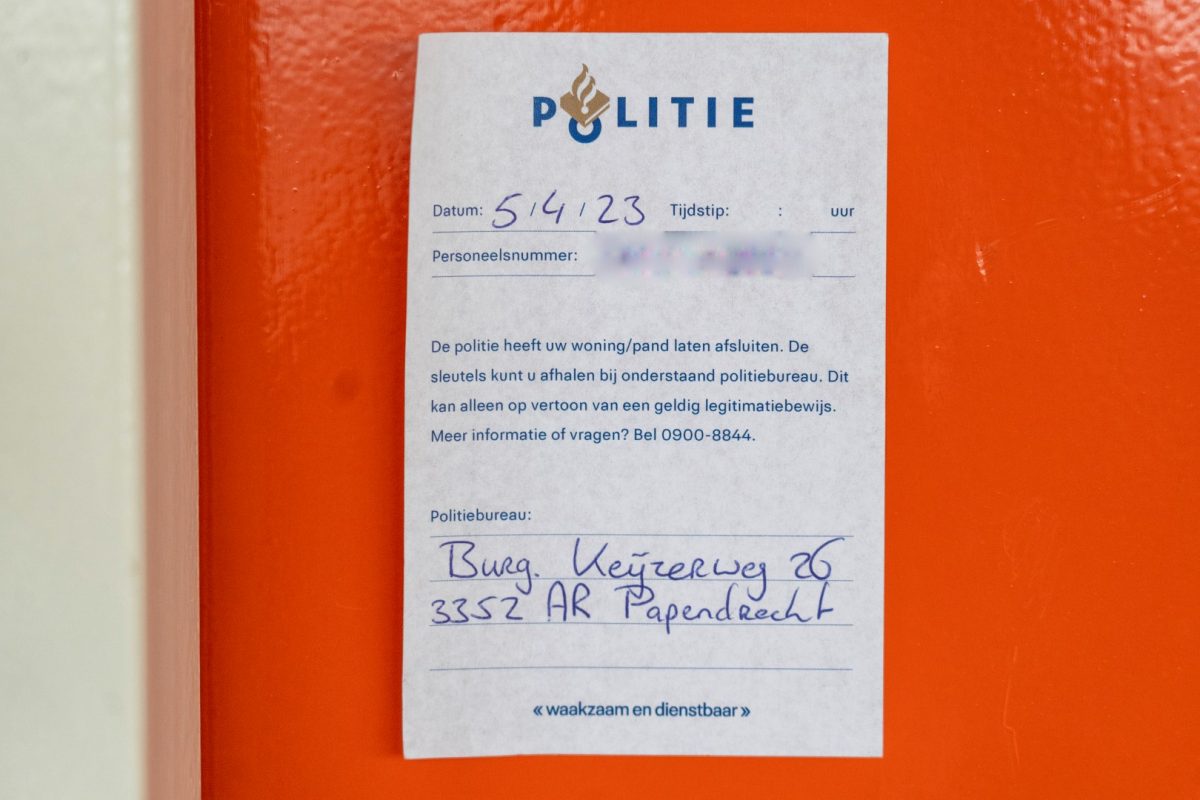 POLITIE
Datum: 5/4/23 Tijdstip: : uur
Personeelsnummer:
De politie heeft uw woning/pand laten afsluiten. De
sleutels kunt u afhalen bij onderstaand politiebureau. Dit
kan alleen op vertoon van een geldig legitimatiebewijs.
Meer informatie of vragen? Bel 0900-8844.
Politiebureau:
Burg. Keijzerweg 26
3352 AR Papendrecht
« waakzaam en dienstbaar »